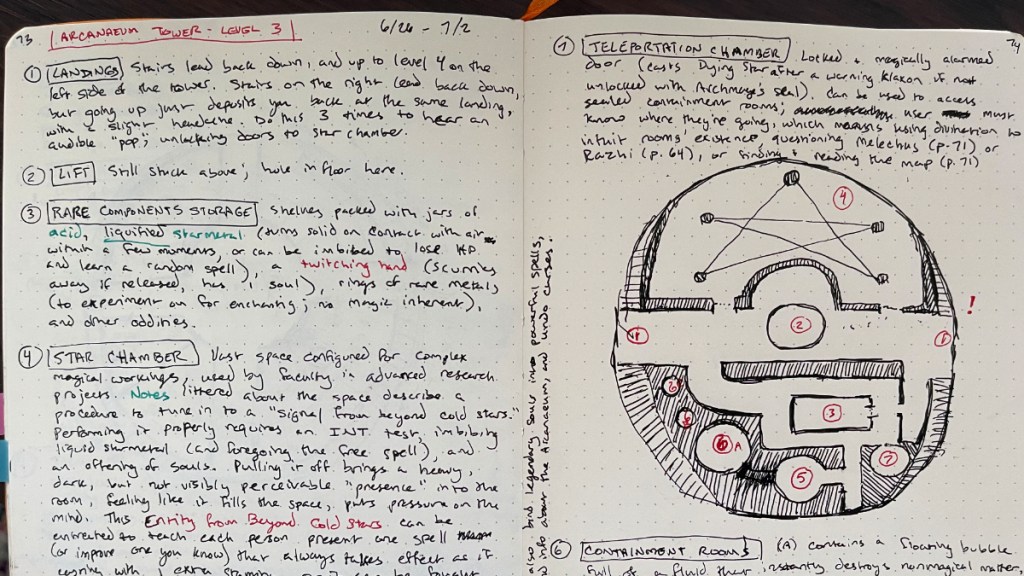 73 ARCANAEUM TOWER - LEVEL 3 6/26 - 7/2
1 LANDINGS Stairs lead back down, and up to level 4 on the
left side of the tower. Stairs on the right lead back down,
but going up just deposits you back at the same landing,
with a slight headache. Do this 3 times to hear an
audible "pop," unlocking doors to star chamber.
2 LIFT Still stuck above; hole in floor here.
3 RARE COMPONENTS STORAGE Shelves packed with jars of
acid, liquified starmetal (turns solid on contact with air
within a few moments, or can be imbibed to lose HP
and learn a random spell), a twitching hand (scurries
away if released, has 1 soul), rings of rare metals
(to experiment on for enchanting; no magic inherent),
and other oddities.
4 STAR CHAMBER Vast space configured for complex
magical workings, used by faculty in advanced research
projects. Notes littered about the space describe a
procedure to tune in to a "signal from beyond cold stars."
Performing it properly requires an INT test, imbibing
liquid starmetal (and foregoing the free spell), and
an offering of souls. Pulling it off brings a heavy,
dark, but not visibly perceivable "presence" into the
room, feeling like it fills the space, puts pressure on the
mind. This Entity from Beyond Cold Stars can be
entreated to teach each person present one spell
(or improve one you know) that always takes effect as if
1 extra
74
7 TELEPORTATION CHAMBER Locked + magically alarmed
door (casts Dying Star after a warning klaxon if not
unlocked with Archmage's seal). Can be used to access
sealed containment rooms; user must
know where they're going, which means using divination to
intuit rooms' existence, questioning Melechus (p. 71) or
Razhi (p. 64), or finding + reading the map (p. 71)
4
!
1
2
1
6
6
3
6 A
5
7
also bind legendary souls into powerful spells,
info about the Arcanaeum, and undo curses.
6 CONTAINMENT ROOMS (A) contains a floating bubble
full of a fluid that instantly destroys nonmagical matter,